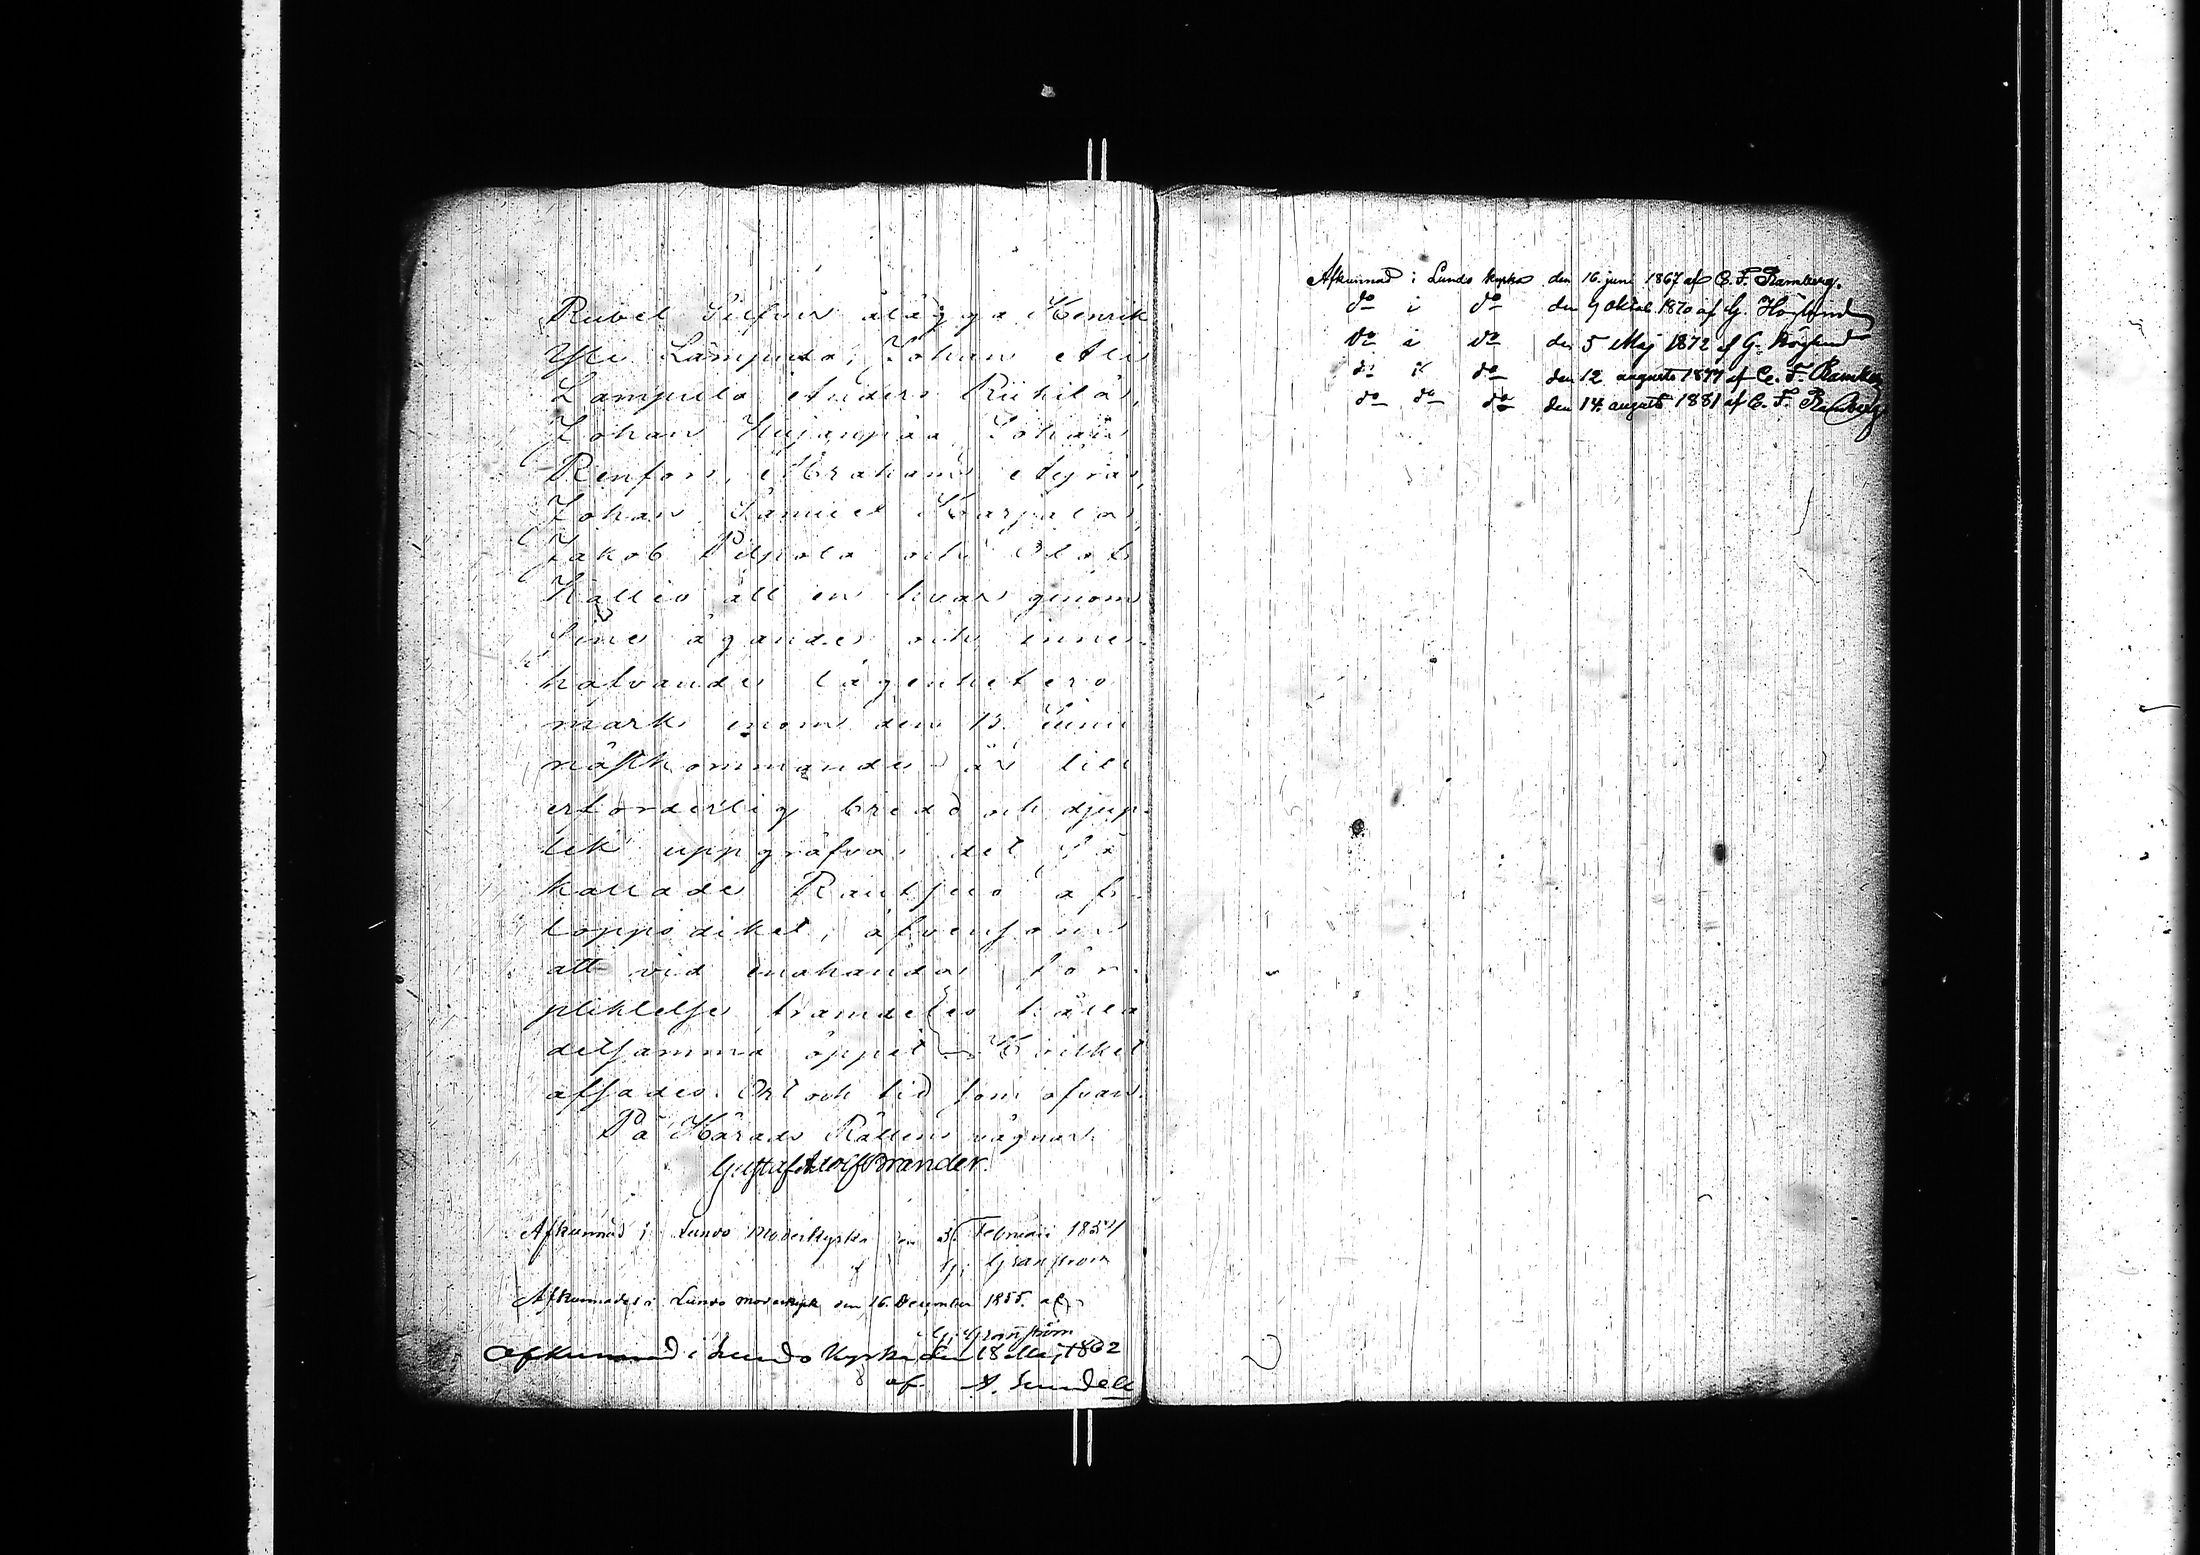 Rubel Silfver ålägga Henrik
Yli Lampila, Johan Ali
Lampila Anders Riihilä,
Johan Kujanpää Johan
Renfors, Abraham Äyräs,
Johan Samuel Karjala,
Jakob Piljola och Olof
Kallio att en hvar genom
Sine ägande och inne-
hafvande lägenheters
mark inom den 13 Junii
nästkommande år till
erforderlig bredd och djup-
lek uppgräfva det så
kallade Rautjus af-
loppsdiket, äfvensom
att vid enahanda för-
pliktelse framdeles hålla
detsamma öppet Hvilket
afsades Ort och tid som ofvan
På Härads Rättens vägnar:
Gustaf Adolf Brander.
Afkunnad i Lundo Moderkyrka Februarii 1854
af G. Granström
Afkunnades i Lundo moderkyrk den 16. December 1855. af
G. Granström
Afkunnad i Lundo Kyrka den 18 Maj 1862
af A. Sundell
Afkunnad i Lundo kyrka den 16. juni 1867 af C. F. Ramberg.
do i do den 9 Oktob 1870 af G. Höglund
do i do den 5 Maj 1872 af G. Höglund
do i do den 12 augusti 1877 af C. F. Ramberg
do do do den 14. augusti 1881 af C. F. Ramberg